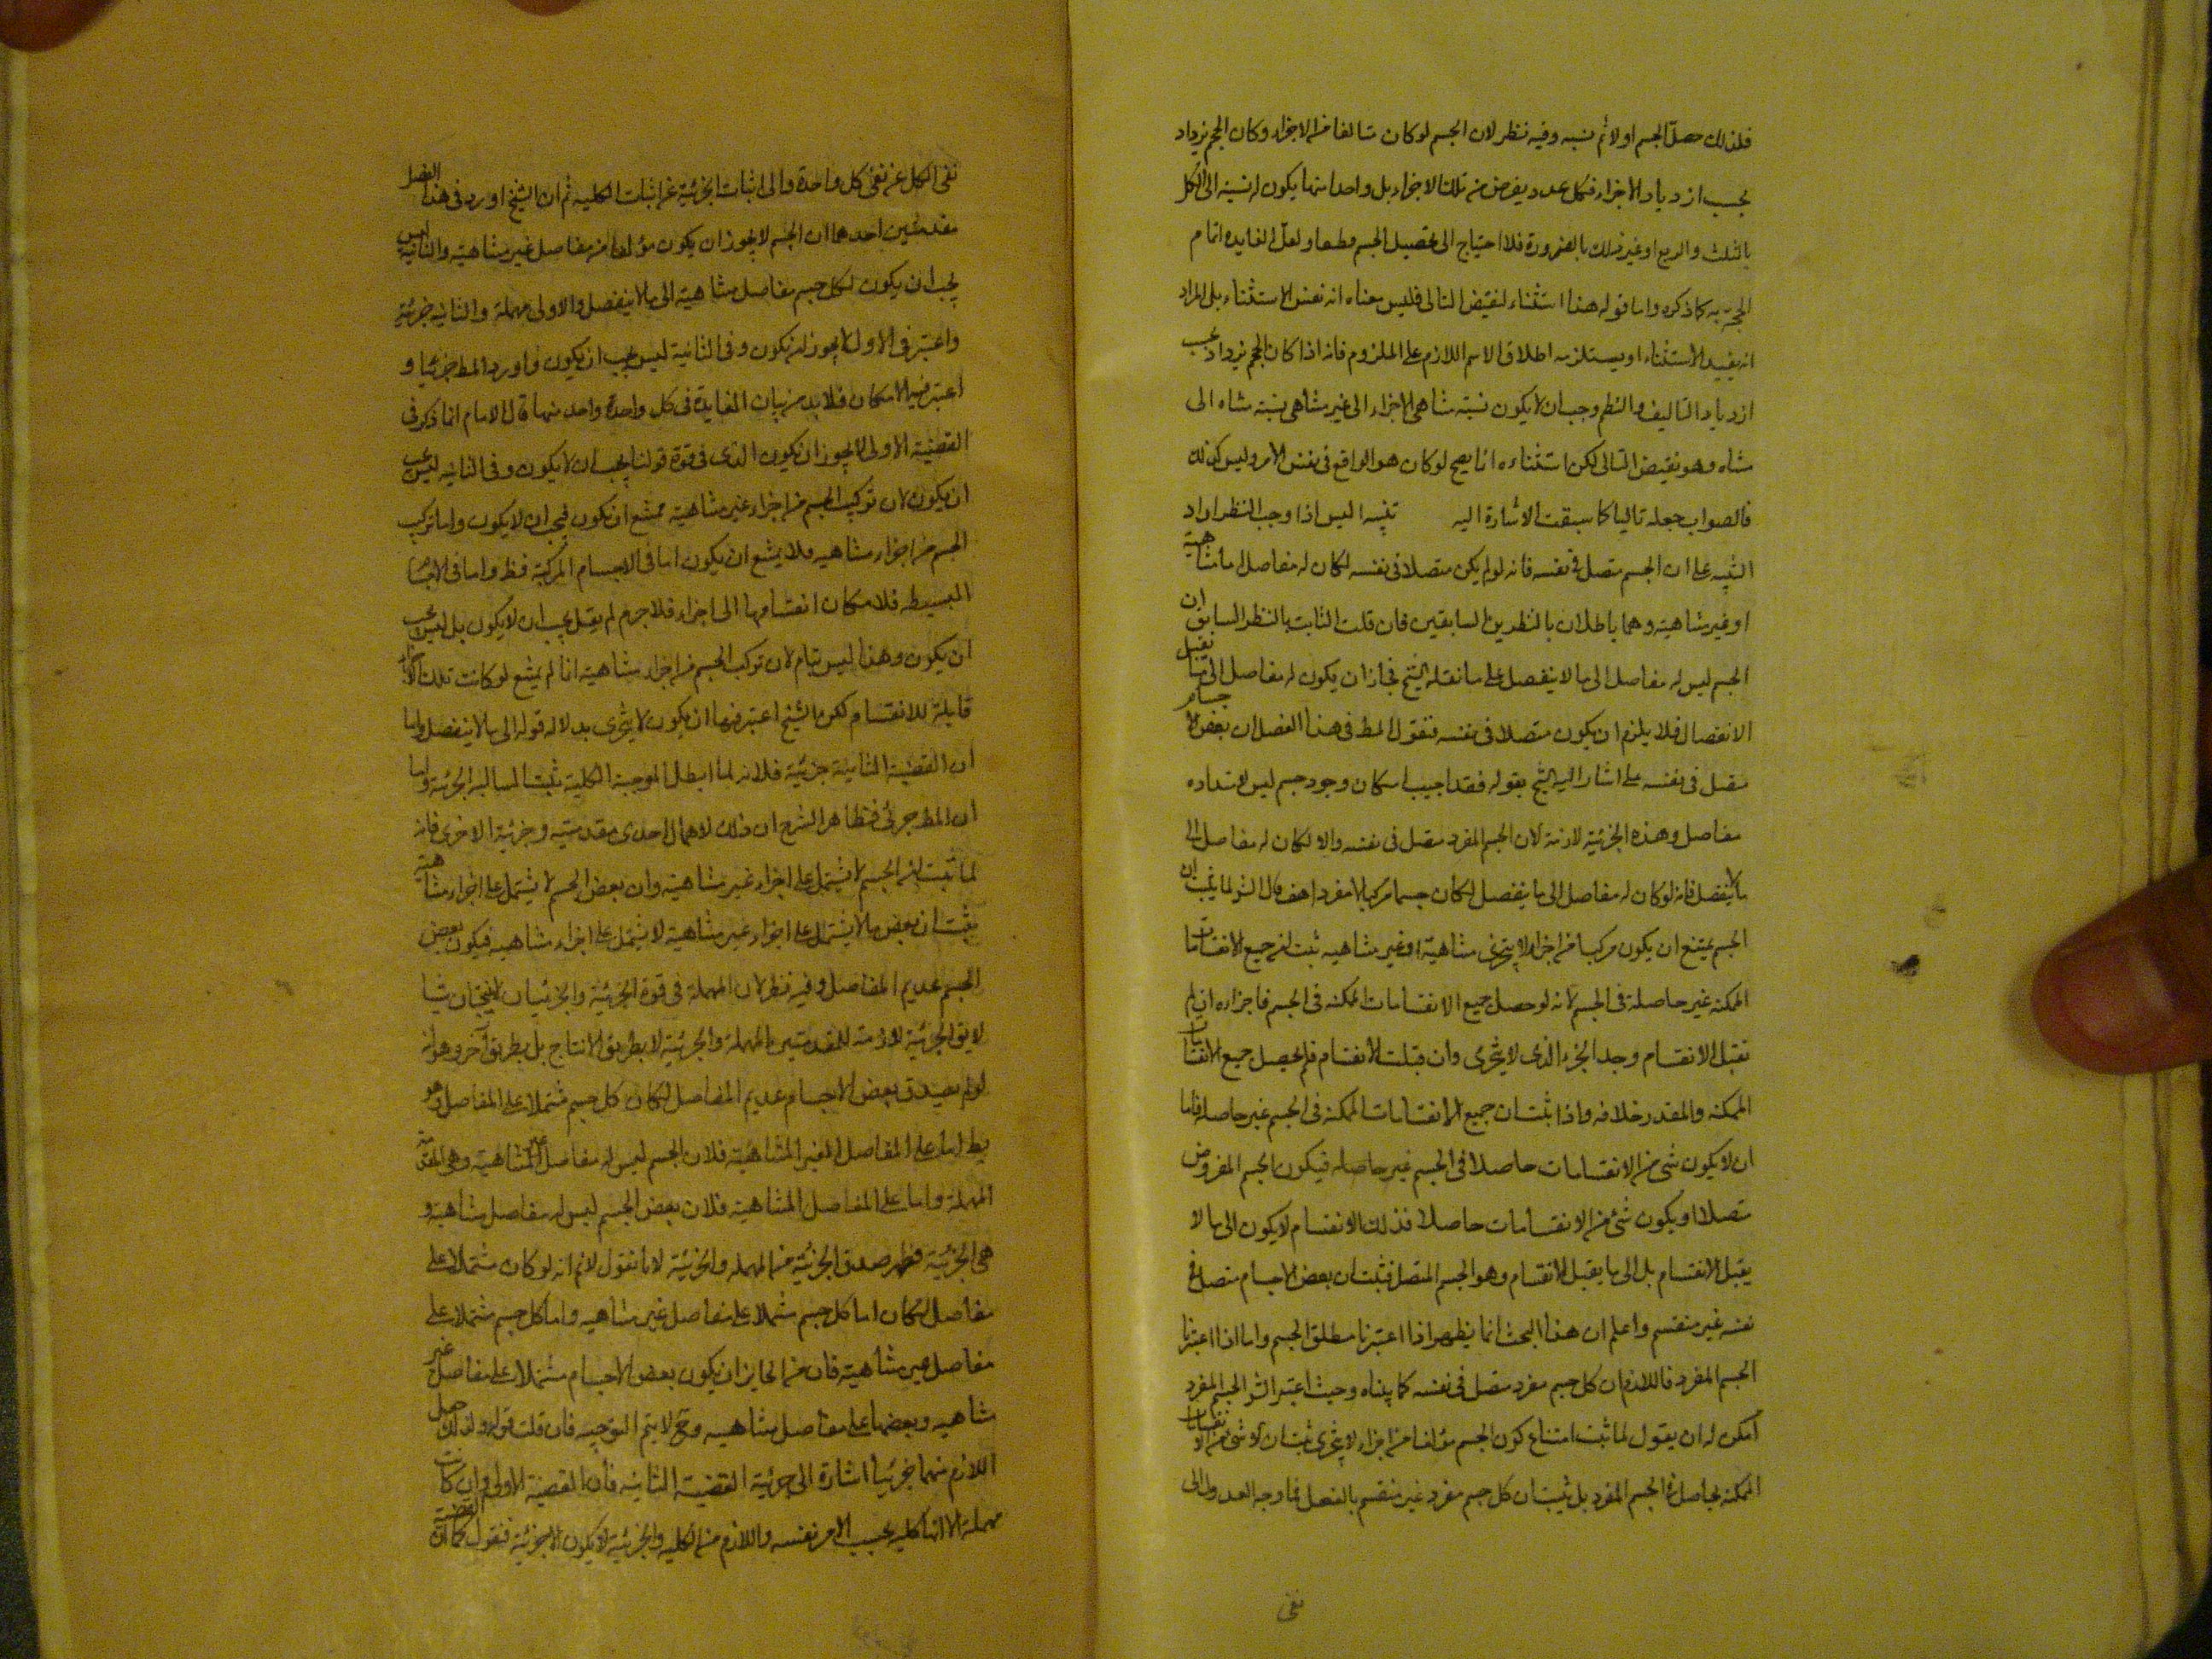 فلذلك حصل الجسم اولا ثم نسبه وفيه نظر لان الجسم لو كان متالفا من الاجزاء وكان الحجم يزداد
بحسب ازدياد الاجزاء فكل عدد يفرض من تلك الاجزاء بل واحد منها يكون له نسبة الى الكل
بالثلث والربع او غير ذلك بالضرورة فلا احتياج الى تحصيل الجسم ولعل الفايده اتمام
الحجة به كما ذكره واما قوله هذا استثناء لنقيض التالى فليس معناه انه نفس الاستثناء بل المراد
انه يفيد الاستثناء او يستلزمه اطلاقا لاسم اللازم على الملزوم فانه اذا كان الحجم يزداد بحسب
ازدياد التاليف والنظم وجب ان لا يكون نسبة متناهى الاجزاء الى غير متناهى نسبة متناه الى
متناه وهو نقيض التالى لكن استثناءه انما يصح لو كان هو الواقع فى نفس الامر وليس كذلك
فالصواب جعله تاليا كما سبقت الاشارة اليه تنبيه اليس اذا وجب النظر اراد
التنبيه على ان الجسم متصل فى نفسه فانه لو لم يكن متصلا فى نفسه لكان له مفاصل اما متناهية
او غير متناهية وهما باطلان بالنظرين السابقين فان قلت الثابت بالنظر السابق ان
الجسم ليس له مفاصل الى ما لا ينفصل على ما نقله الشيخ فجاز ان يكون له مفاصل الى ما يقبل
الانفصال فلا يلزم ان يكون متصلا فى نفسه فنقول المط فى هذا الفصل ان بعض الاجسام
متصل فى نفسه على اشار اليه الشيخ بقوله فقد اجيب امكان وجود جسم ليس لامتداده
مفاصل وهذه الجزئية لازمة لان الجسم المفرد متصل فى نفسه والا لكان له مفاصل الى
ما لا ينفصل فانه لو كان له مفاصل الى ما ينفصل لكان جسما مركبا لا مفردا هف قال الش لما ثبت ان
الجسم يمتنع ان يكون مركبا من اجزاء لا يتجزى متناهية او غير متناهيه ثبت ان جميع الانقسامات
الممكنة غير حاصلة فى الجسم لانه لو حصل جميع الانقسامات الممكنه فى الجسم فاجزاءه ان لم
تقبل الانقسام وجد الجزء الذى لا يتجزى وان قبلت الانقسام فلم يحصل جميع الانقسامات
الممكنه والمقدر خلافه واذا ثبت ان جميع الانقسامات الممكنة فى الجسم غير حاصلة فاما
ان لا يكون شى من الانقسامات حاصلا فى الجسم غير حاصله فيكون الجسم المفروض
متصلا او يكون شئ من الانقسامات حاصلا فذلك الانقسام لا يكون الى ما لا
يقبل الانقسام بل الى ما يقبل الانقسام وهو الجسم المتصل فثبت ان بعض الاجسام متصل فى
نفسه غير منقسم واعلم ان هذا البحث انما يظهر اذا اعتبرنا مطلق الجسم واما اذا اعتبرنا
الجسم المفرد فاللازم ان كل جسم مفرد متصل فى نفسه كما بيناه وحيث اعتبر الش الجسم المفرد
امكن له ان يقول لما ثبت امتناع كون الجسم مؤلفا من اجزاء لا يتجزى ثبت ان لا شى من الانقسامات
الممكنة بحاصل فى الجسم المفرد بل ثبت ان كل جسم مفرد غير منقسم بالفعل فما وجه العدول الى
نفى
نفى الكل عن نفى كل واحدة والى اثبات الجزئية عن اثبات الكليه ثم ان الشيخ اورد فى هذا الفصل
مقدمتين احدهما ان الجسم لا يجوز ان يكون مؤلفا من مفاصل غير متناهية والثانية ليس
يجب ان يكون لكل جسم مفاصل متناهية الى ما لا ينفصل والاولى مهملة والثانيه جزئية
واعتبر فى الاول لا يجوز ان يكون وفى الثانية ليس يجب ان يكون واورد المط جزئيا و
اعتبر فيه الامكان فلا بد من بيان الفايدة فى كل واحدة واحد منها قال الامام انما ذكر فى
القضية الاولى لا يجوز ان يكون الذى فى قوة قولنا يجب ان لا يكون وفى الثانيه ليس يجب
ان يكون لان تركيب الجسم من اجزاء غير متناهية ممتنع ان يكون فيجب ان لا يكون واما تركيب
الجسم من اجزاء متناهيه فلا يمتنع ان يكون اما فى الاجسام المركبة فظ واما فى الاجسام
البسيطه فلامكان انقسامها الى اجزاء فلا جرم لم يقل يجب ان لا يكون بل ليس يجب
ان يكون وهذا ليس بتام لان تركب الجسم من اجزاء متناهية انما لم يمتنع لو كانت تلك الاجزاء
قابلة للانقسام لكن الشيخ اعتبر فيها ان يكون لا يتجزى بدلالة قوله الى ما لا ينفصل واما
ان القضية الثانية جزئية فلانه لما ابطل الموجبة الكلية ثبت السالبه الجزئية واما
ان المط جزئى فظاهر الشرح ان ذلك لاهمال احدى مقدمتيه وجزئية الاخرى فانه
لما ثبت ان الجسم لا يشتمل على اجزاء غير متناهية وان بعض الجسم لا يشتمل على اجزاء متناهية
ثبت ان بعض ما لا يشتمل على اجزاء غير متناهية لا يشتمل على اجزاء متناهيه فيكون بعض
الجسم عديم المفاصل وفيه نظر لان المهملة فى قوة الجزئية والجزئيتان لا ينتجان شيا
لا يق الجزئية لازمة للمقدمتين المهملة والجزئية لا بطريق الانتاج بل بطريق آخر وهو انه
لو لم يصدق بعض الاجسام عديم المفاصل لكان كل جسم مشتملا على المفاصل وهو
بط اما على المفاصل الغير المتناهية فلان الجسم ليس له مفاصل غير متناهية وهى المقدمة
المهملة واما على المفاصل المتناهية فلان بعض الجسم ليس له مفاصل متناهية و
هى الجزئية فظهر صدق الجزئية من المهمله والجزئية لانا نقول لانم انه لو كان مشتملا على
مفاصل لكان اما كل جسم مشتملا على مفاصل غير متناهيه واما كل جسم مشتملا على
مفاصل متناهية فان من الجايز ان يكون بعض الاجسام مشتملا على مفاصل غير
متناهيه وبعضها على مفاصل متناهيه وح لا يتم التوجيه فان قلت قوله ولذلك جعل
اللازم منهما جزئيا اشارة الى جزئية القضية الثانيه فان القضية الاولى وان كانت
مهملة الا انها كليه بحسب الامر نفسه واللازم من الكليه والجزئية لا يكون الا جزئية فنقول كما ان القضية